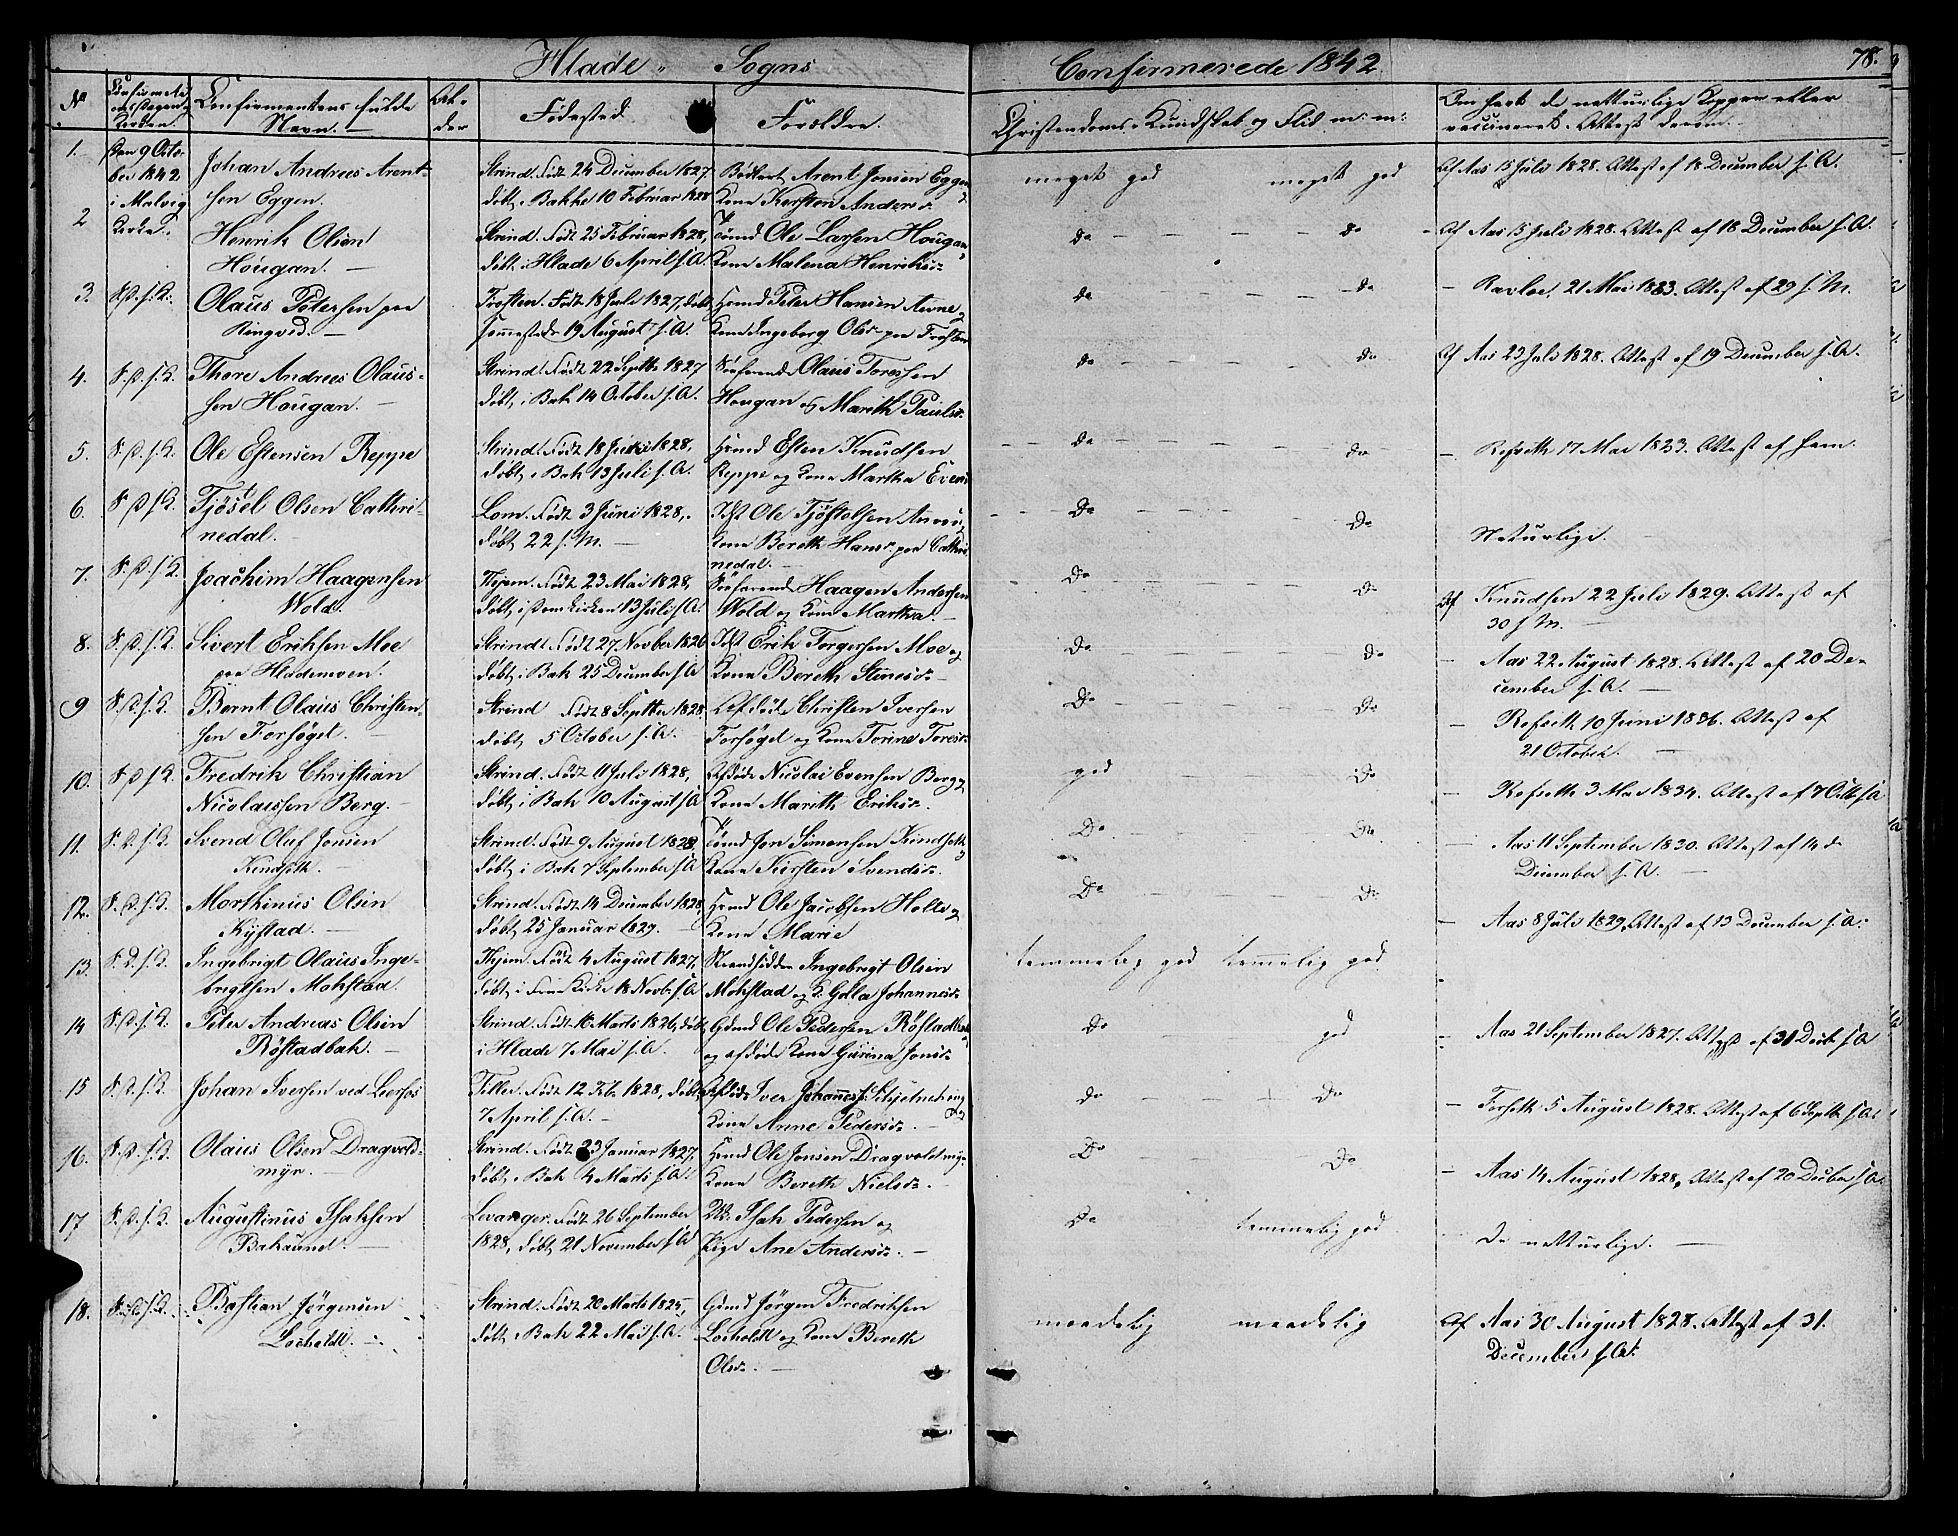 Hlade Sogns Confirmerede 1842. 78.
No Confirmantens fulde Navn. Fødested Forældre. Christendoms-Kundskab og Flid m: m: Om havt de naturlige Kopper eller vaccineret. Attest derom.
1. den 9 October 1842 i Malvig Kirke.
Johan Andreas Arent-
sen Eggen.
Strind. Født 24 December 1827
døbt i Bakke 10 Februar 1828
Arent Jonsen Eggen
Kone Kersten Andersd.
meget god meget god
Af Aas 15 Juli 1828. Attest af 18 December s. A.
2 Henrik Olsen
Hougan.
Strind. Født 25 Februar 1828,
døbt i Hlade 6 April s. A.
Ole Larsen Hougan
Kone Malena Henriksd.
do - - - - do
Af Aas 15 Juli 1828. Attest af 18 December s. A.
3. Olaus Petersen paa
Ringved.
Frosten. Født 18 Juli 1827, døbt
sammesteds 19 August s. A.
Huusmd Peter Hansen
Kone Ingeborg Olsd. paa Frosten
do - - - - do
- Ravloe, 21 Mai 1833. Attest af 29 s. M.
4. Thore Andreas Olaus-
sen Hougan.
Strind. Født 22 Septbr 1827
døbt i Bak 14 October s. A.
Olaus Toressen
Hougan og Marith Paulsd.
do - - - - do
Af Aas 23 Juli 1828. Attest af 19 December s. A.
5. Ole Estensen Reppe
Strind. Født 18 Juni 1828,
døbt i Bak 13 Juli s. A.
Huusmd Esten Knudsen
Reppe og Kone Martha
do - - - - do
- Refseth 17 Mai 1833. Attest af ham.
6. Tjøstel Olsen Cathri-
nedal.
Lom. Født 3 Juni 1828,
døbt 22 s. M.
Inst Ole Tjøstolsen
Kone Bereth Hansd. paa Cathri
nedal.
do - - - - do
Naturlige.
7. Joachim Haagensen
Wold.
Hjem. Født 23 Mai 1828,
13 Juli s. A.
Søefarende Haagen Andersen
Wold og Kone Martha.
do - - - - do
Af Knudsen 22 Juli 1829. Attest af
30 s M.
8. Sivert Eriksen Moe
paa Hlademoen.
Strind. Født 27 Novber 1826
døbt i Bak 25 December s. A
Inst Erik Torgersen Moe og
Kone Bereth
do - - - - do
- Aas 22 August 1828. Attest af 20 De-
cember s. A.
9 Bernt Olaus Christen-
sen Forsøget.
Strind Født 8 Septber 1828
døbt 5 October s. A.
Afdøde Christen Iversen
Forsøget og Kone Torine Toresd.
do - - - - do
- Refseth 10 Juni 1836. Attest af
21 October.
10. Fredrik Christian
Nicolaissen Berg.
Strind. Født 11 Juli 1828,
døbt i Bak 10 August s. A
Afdøde Nicolai Evensen Berg og
Kone Marith Eriksd.
god - - - do
- Refseth 3 Mai 1834. Attest af 7 Octb s. A
11. Svend Oluf Jonsen
Kindseth.
Strind. Født 9 August 1828,
døbt i Bak 7 September s. A
Jon Simonsen Kindseth
Kone Kirsten Svendsd.
Do - - - do
- Aas 11 September 1820. Attest af 14 de
December s. A.
12. Morthinus Olsen
Kystad.
Strind. Født 14 December 1828,
døbt 25 Januar 1829.
Huusmd Ole Jacobsen Holle og
Kone Marie
Do - - - do
- Aas 8 Juli 1829, Attest af 13 December s. A.
13. Ingebrigt Olaus Inge-
brigtsen Mohstad
Hjem. Født 4 August 1827,
døbt i 18 Novb. s. A
Strandsidder Ingebrigt Olsen
Mohstad og K. Golla Johannesd.
temmelig god temmelig god
14 Peter Andreas Olsen
Røstadbak.
Strind. Født 16 Marts 1826, døbt
i Hlade 7 Mai s. A.
Gmd Ole Pedersen Røstadbak
og afdøde Kone Gurina Jonsd.
do god
- Aas 21 September 1827. Attest af 31 Decb s. A
15 Johan Iversen ved Leerfos
Tiller. Født 12 Feb. 1828, døbt
7 April s. A.
Afdøde Iver Johanness.
Kone Anne Pedersd.
do - - - do
- Forseth 5 August 1828. Attest af 6 Septb. s. A.
16. Olaus Olsen Dragvold-
myr.
Strind. Født 23 Januar 1827,
døbt i Bak 4 Marts s. A.
Huusmd Ole Jonsen Dragvoldmyr
Kone Bereth Nielsd.
Do do
- Aas 14 August 1828, Attest af 20 Decber s. A.
17 Augustinus Isaksen
Bakaunet.
Levanger. Født 26 September
1828, døbt 21 November s. A
Isak Pedersen og
Pige Ane Andersd.
Do temmelig god
- De naturlige.
18. Bastian Jørgensen
Locholdt.
Strind. Født 20 Marts 1825,
døbt i Bak 22 Mai s. A.
Gmd Jørgen Fredriksen
Locholdt og Kone Bereth
Olsd.
maadelig maadelig
Af Aas 30 August 1828. Attest af 31.
December s. A.